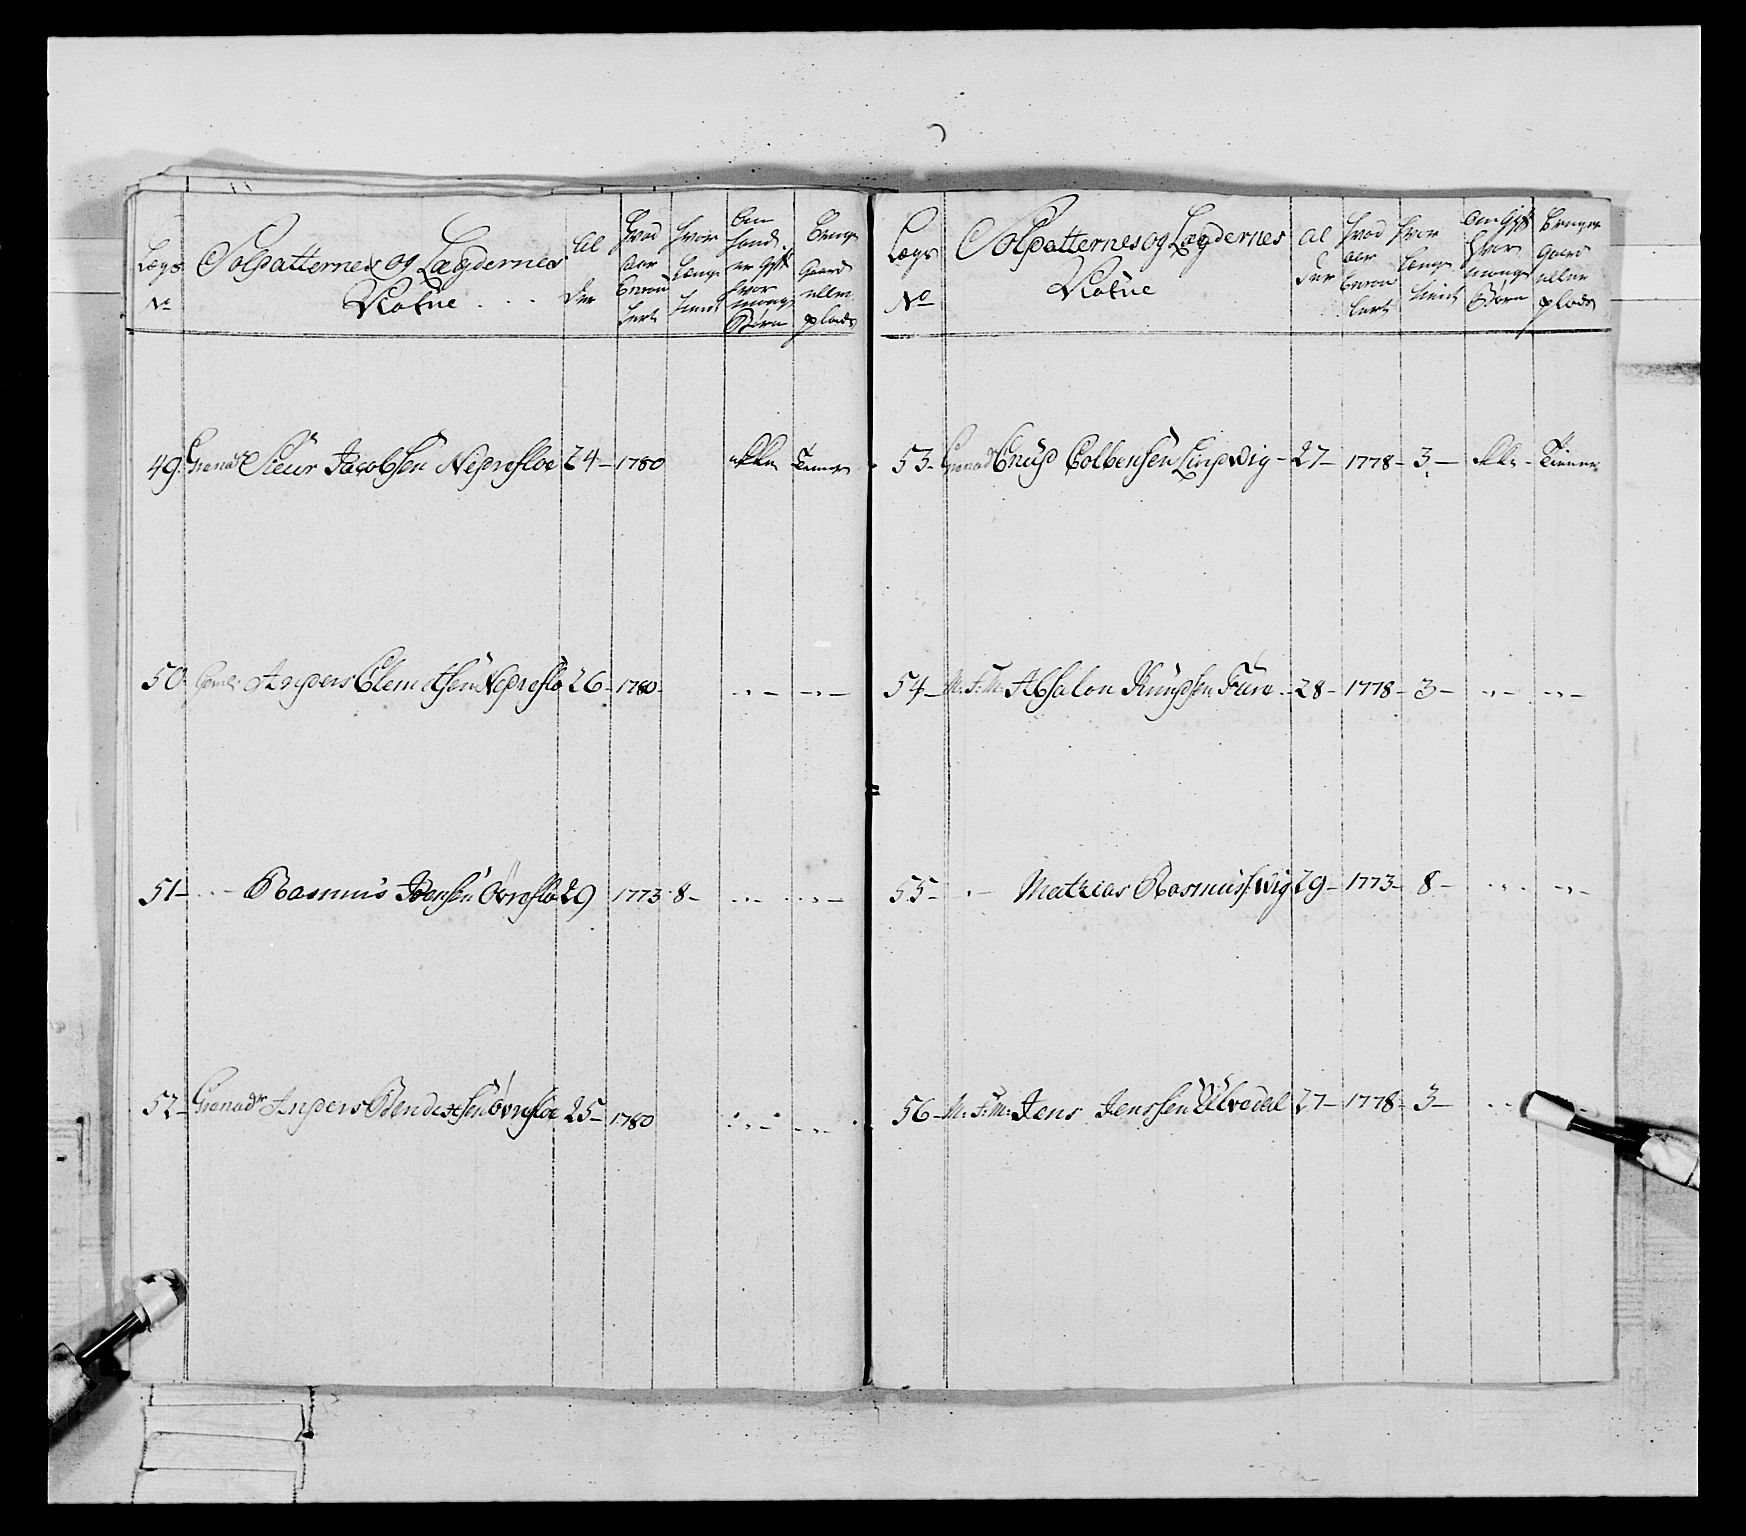 Lægs No
Soldatternes og Lægdernes Nafne
Al der
Hvad Aar Enroulert
Hvor Længe tient
Om hand er Gift hvor mange Børn
Gaard eller plads
49. Grenadr Siur Jacobsen Nedrefloe 24 – 1780 Ikke Tiener
50. Anders Clemetsen Nedreflo 26 – 1780 – „ – – „ –
51 – „ – Rasmus Iversen Øvreflo 29 1773 8 – „ – – „ –
52 – Grenadr Anders Bendixsen Øvrefloe 25 – 1780 „ – – „ –
Lægs No
Soldatternes og Lægdernes Nafne
Al der
Hvad Aar Enroulert
Hvor Længe tient
Om Gift Hvor mange Børn
Gaard eller plads
53 – Grenadr Knud Colbensen Lindvig – 27 – 1778 – 3 – Ikke – Tiener
54 – M. F. M. Absalon Knudsen Fure – 28 – 1778 – 3 – „ – – „ –
55 – „ – Mathias Rasmuss: Vig 29 – 1773 – 8 – „ – – „ –
56 – M. F. M. Jens Jenssen Ulvedal 27 – 1778 – 3 –